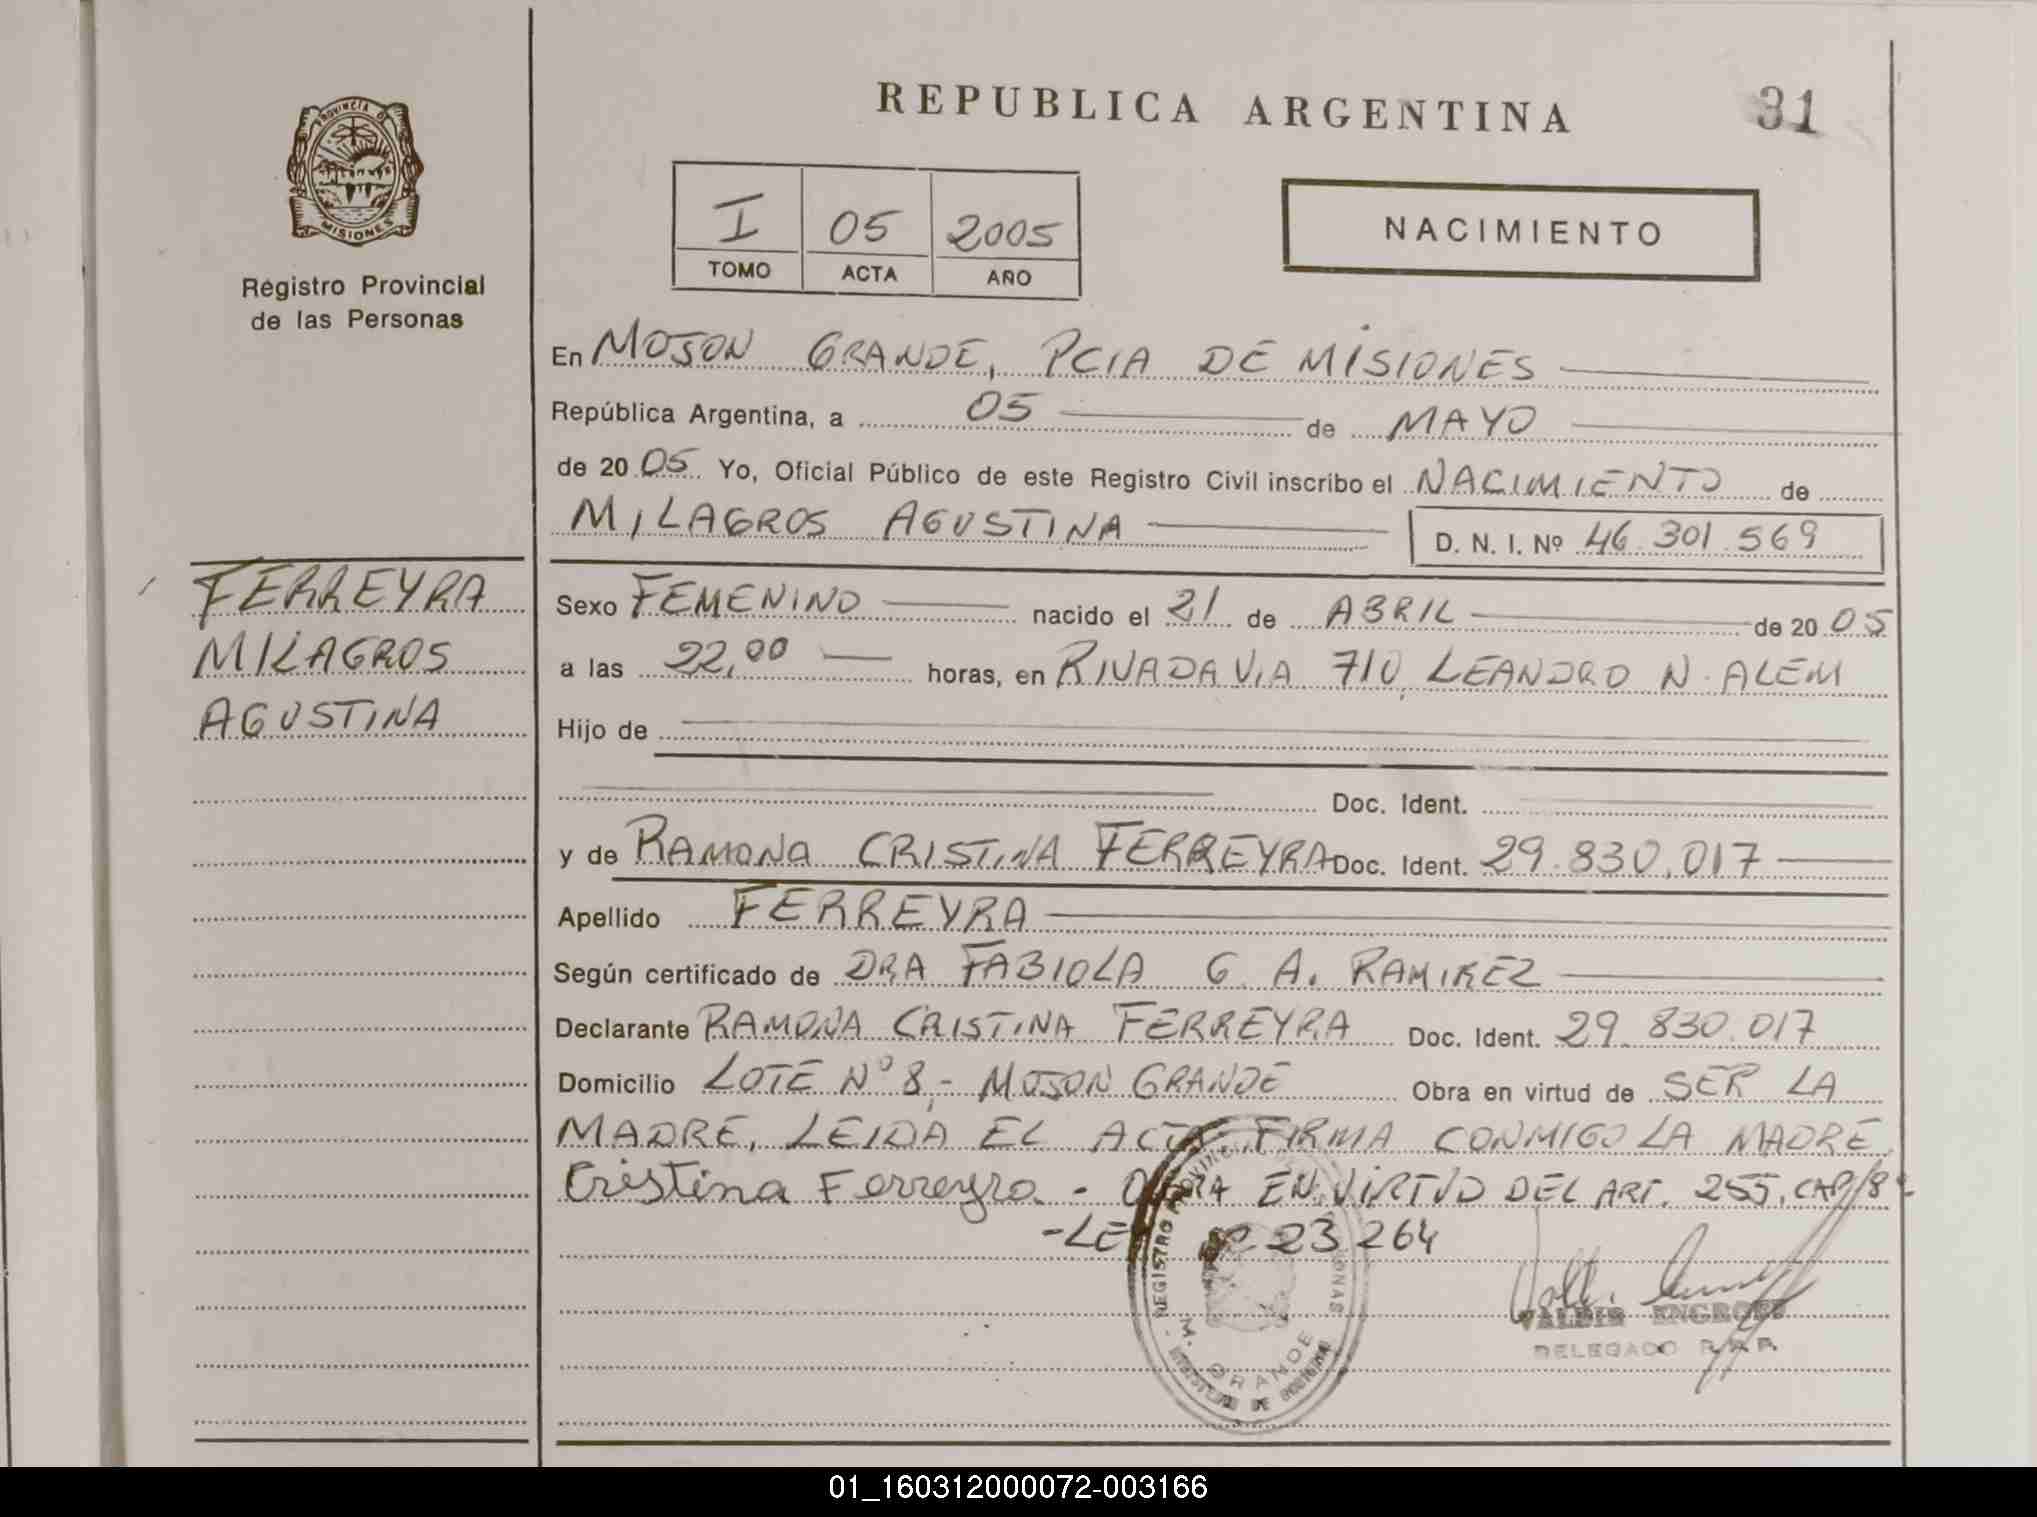 REPUBLICA ARGENTINA
31
PROVINCIA DE
MISIONES
Registro Provincial
de las Personas
I 05 2005
TOMO ACTA AÑO
NACIMIENTO
En MOJON GRANDE, PCIA DE MISIONES
República Argentina, a 05 de MAYO
de 2005 Yo, Oficial Público de este Registro Civil inscribo el NACIMIENTO de
MILAGROS AGUSTINA D. N. I. Nº 46.301.569
FERREYRA
MILAGROS
AGUSTINA
Sexo FEMENINO nacido el 21 de ABRIL de 2005
a las 22,00 horas, en RIVADAVIA 710, LEANDRO N. ALEM
Hijo de
Doc. Ident.
y de RAMONA CRISTINA FERREYRA Doc. Ident. 29.830.017
Apellido FERREYRA
Según certificado de DRA FABIOLA G. A. RAMIREZ
Declarante RAMONA CRISTINA FERREYRA Doc. Ident. 29.830.017
Domicilio LOTE Nº 8, - MOJON GRANDE Obra en virtud de SER LA
MADRE, LEIDA EL ACTA FIRMA CONMIGO LA MADRE,
Cristina Ferreyra - OBRA EN VIRTUD DEL ART. 255, CAP/8º
-LEY Nº 23264
REGISTRO PROVINCIAL PERSONAS
M. GRANDE
DELEGADO R.P.P.
01_160312000072-003166